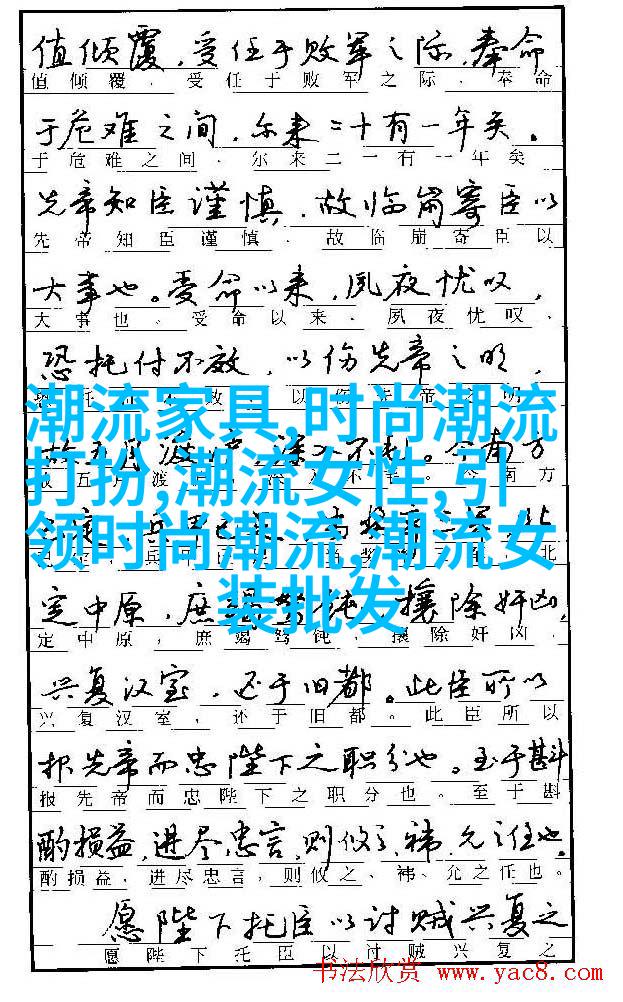 值倾覆，受任于败军之际，奉命
值倾覆，受任于败军之际，奉命
于危难之间，尔来二十有一年矣。
于危难之间，尔来二一有一年矣
先帝知臣谨慎，故临崩寄臣以
先帝知臣谨慎，故临崩寄臣以
大事也。受命以来，夙夜忧叹，
大事也。受命以来，夙夜忧叹，
恐托付不效，以伤先帝之明，
潮流家具,时尚潮流
故五月渡 不毛。今南方
五月渡 今南方
打扮,潮流女性,引
兵 北
领时尚潮流,潮流女
北
装批发
定中原，庶竭驽钝，攘除奸凶，
定中原，庶竭驽钝，攘除奸凶，
兴复汉室，还于旧都。此臣所以
兴复汉室，还于旧都。此臣所以
报先帝而忠陛下之职分也。至于斟
报先帝而忠陛下之职分也。至于斟
酌损益，进尽忠言，则攸之、祎、允之任也。
酌损益，进尽忠言，则攸之、祎、允之任也。
愿陛下托臣以讨贼兴复之
愿陛下托臣以讨贼兴复之
书法欣赏 www.yac8.com